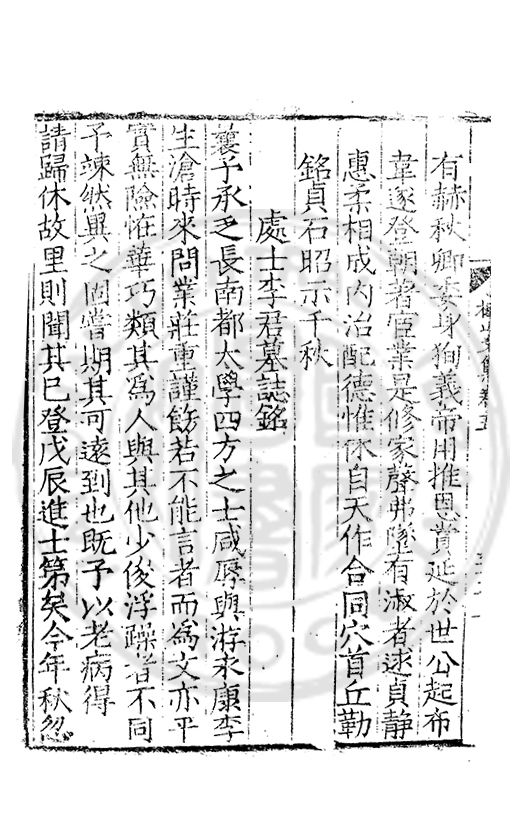 有赫秋卿委身狥義帝用推恩賞延於世公起布
韋遂登朝著宦業是修家聲弗墜有淑者逑貞靜
惠柔相成內治配德惟休自天作合同穴首丘勒
銘貞石昭示千秋
處士李君墓誌銘
曩予承乏長南都大學四方之士咸辱與游永康李
生滄時來問業莊重謹飭若不能言者而為文亦平
實無險怪華巧類其為人與其他少俊浮躁者不同
予竦然異之固嘗期其可遠到也既予以老病得
請歸休故里則聞其已登戊辰進士第矣今年秋忽